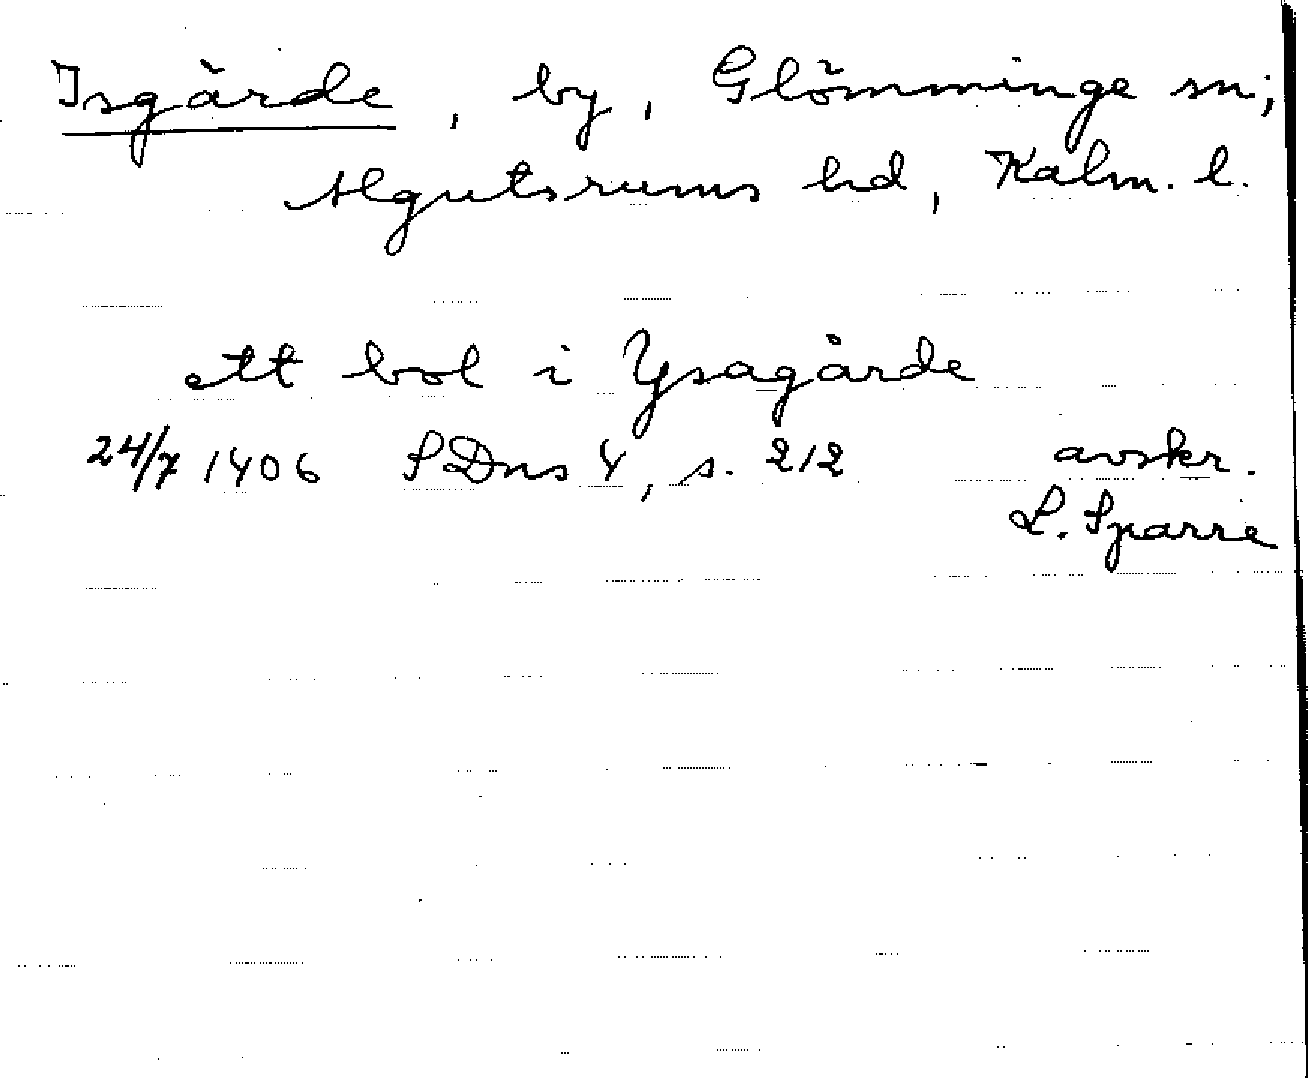 Isgärde, by, Glömminge sn;
Algutsrums hd, Kalm. l.
ett bol i Ysagärde
24/7 1406 SDns 4, s. 212 avskr.
L. Sparre